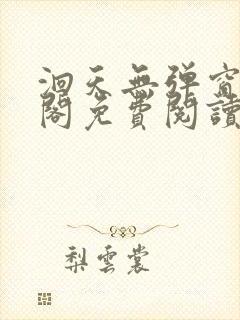 洄天無弹窗
閣免費閱讀
梨雲裳